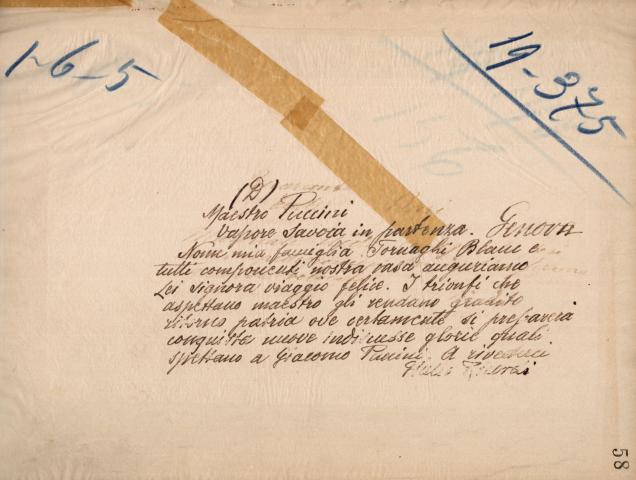 1-6-5
19-375
(D)
Maestro Puccini
Vapore Savoia in partenza. Genova
Nome mia famiglia Tornaghi Blanc e
tutti componenti nostra casa auguriamo
Lei Signora viaggio felice. I trionfi che
aspettano maestro gli rendano gradito
ritorno patria ove certamente si preparerà
conquista nuove indiscusse glorie quali
spettano a Giacomo Puccini. A rivederci
58